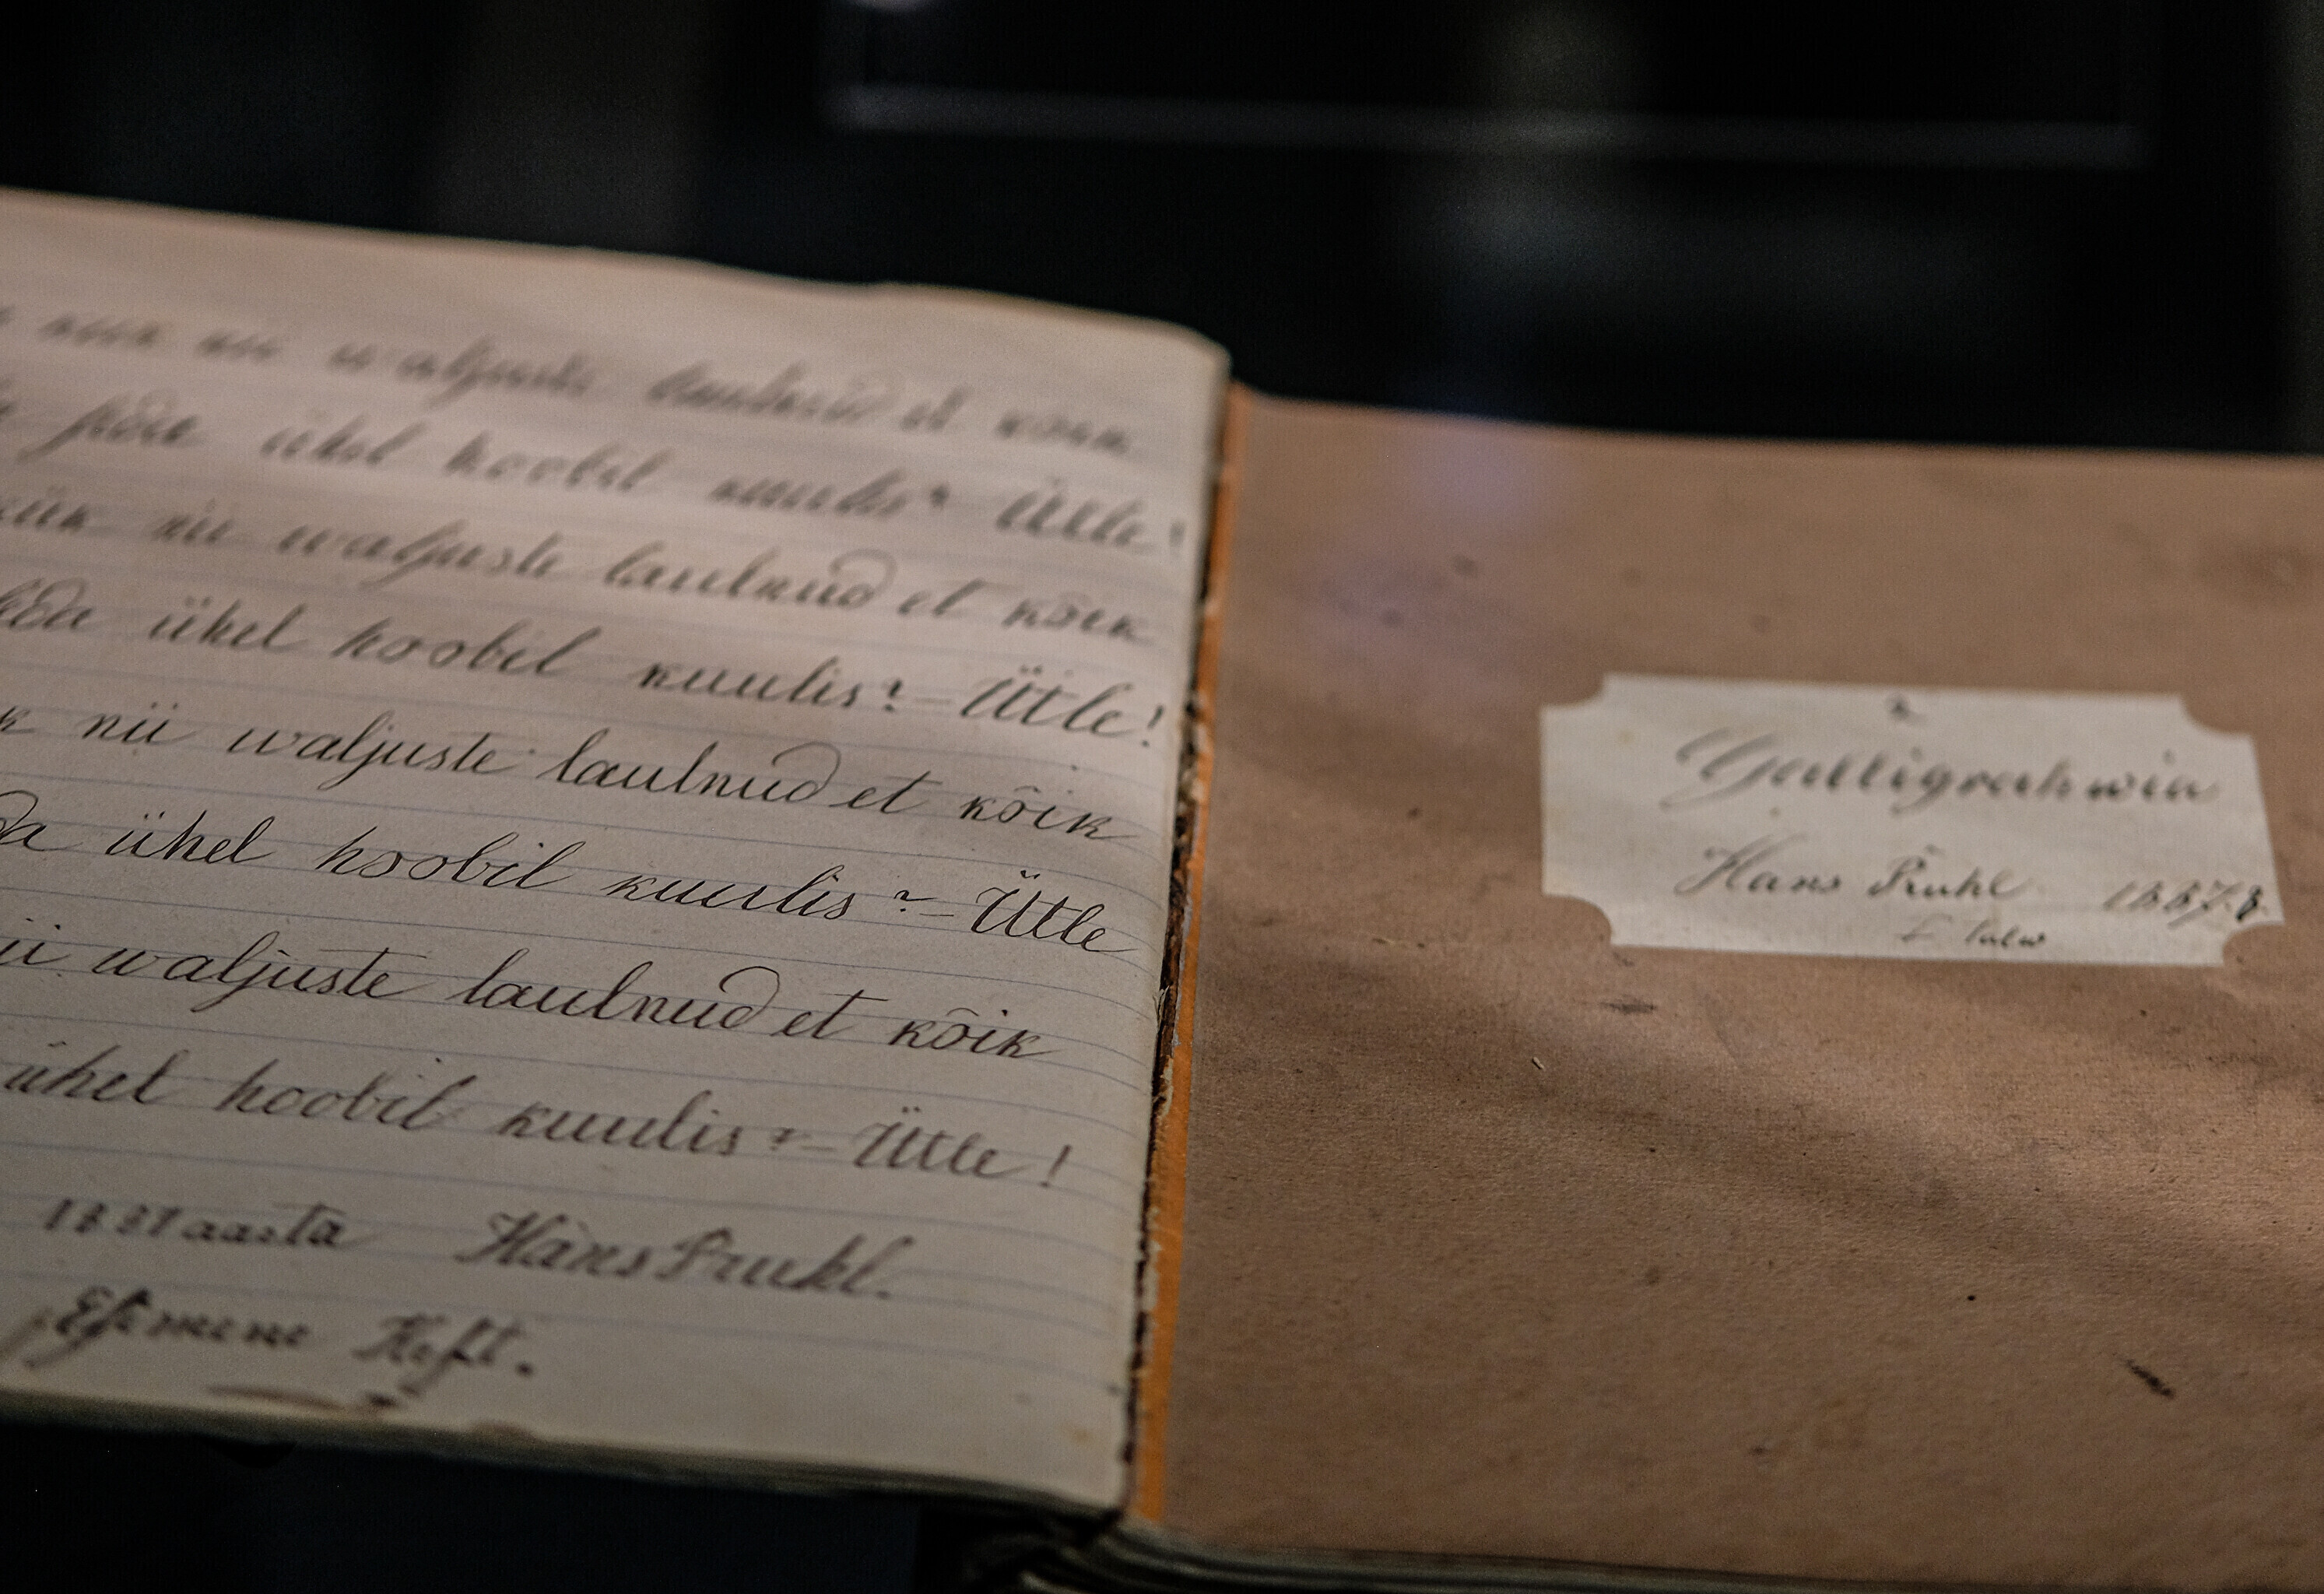 nii waljuste laulnud et kõik
ühel hoobil kuulis? – Ütle!
nii waljuste laulnud et kõik
ühel hoobil kuulis? – Ütle!
nii waljuste laulnud et kõik
ühel hoobil kuulis? – Ütle
waljuste laulnud et kõik
ühel hoobil kuulis? – Ütle!
aasta Hans Pruhl.
Esimene Heft.
Galligrahwia
Hans Pruhl 1887.8.
I talw